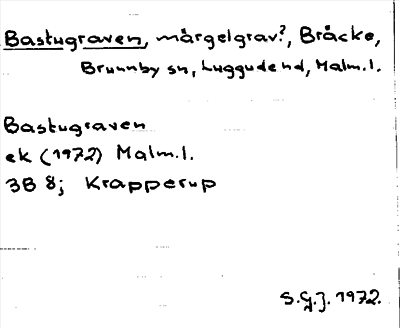 Bastugraven, märgelgrav?, Bräcke,
Brunnby sn, Luggude hd, Malm.l.
Bastugraven
ek (1972) Malm.l.
3B 8; Krapperup
S.G.J. 1972.